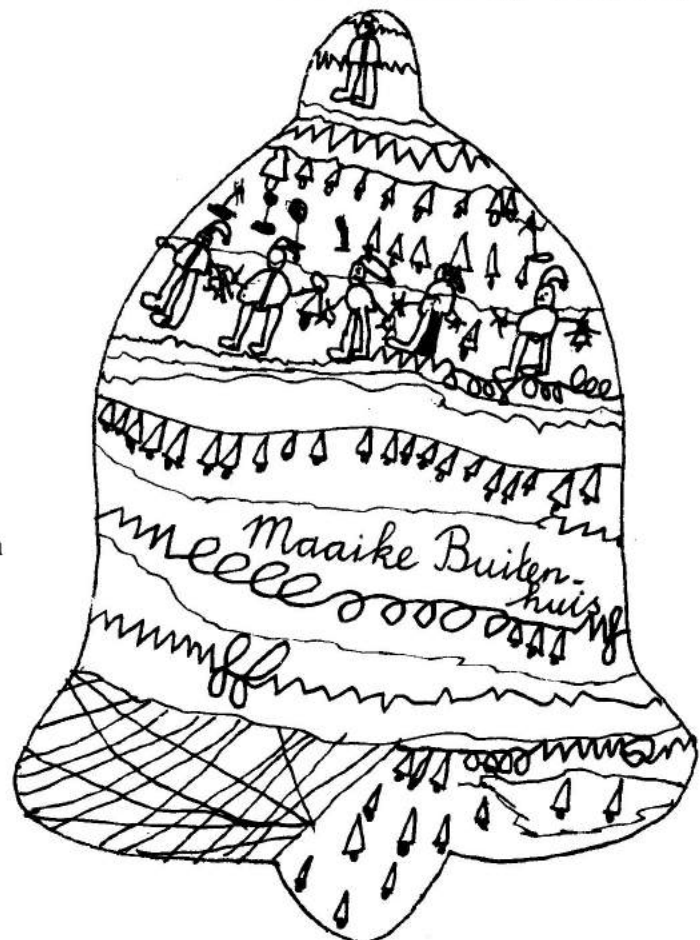 Maaike Buiten-
huis